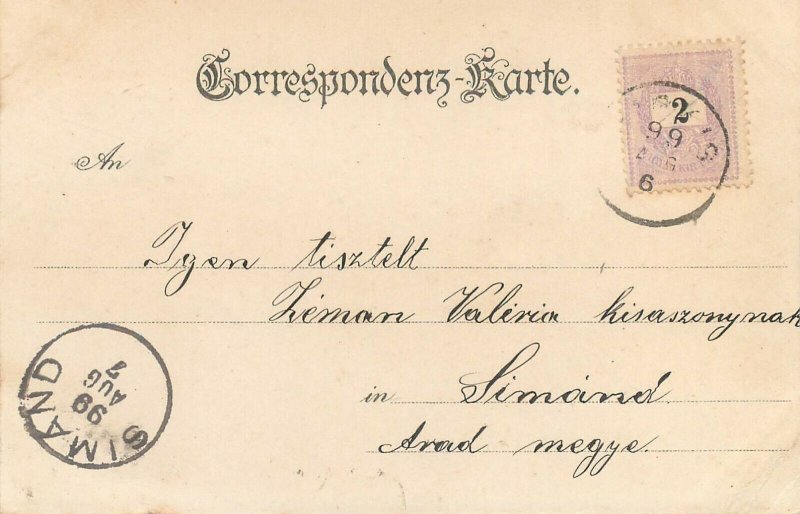 Correspondenz-Karte.
2
99
6
An
Igen tisztelt
Zéman Valéria kisaszonynak
in Simánd
Arad megye.
SIMÁND
99
AUG
7